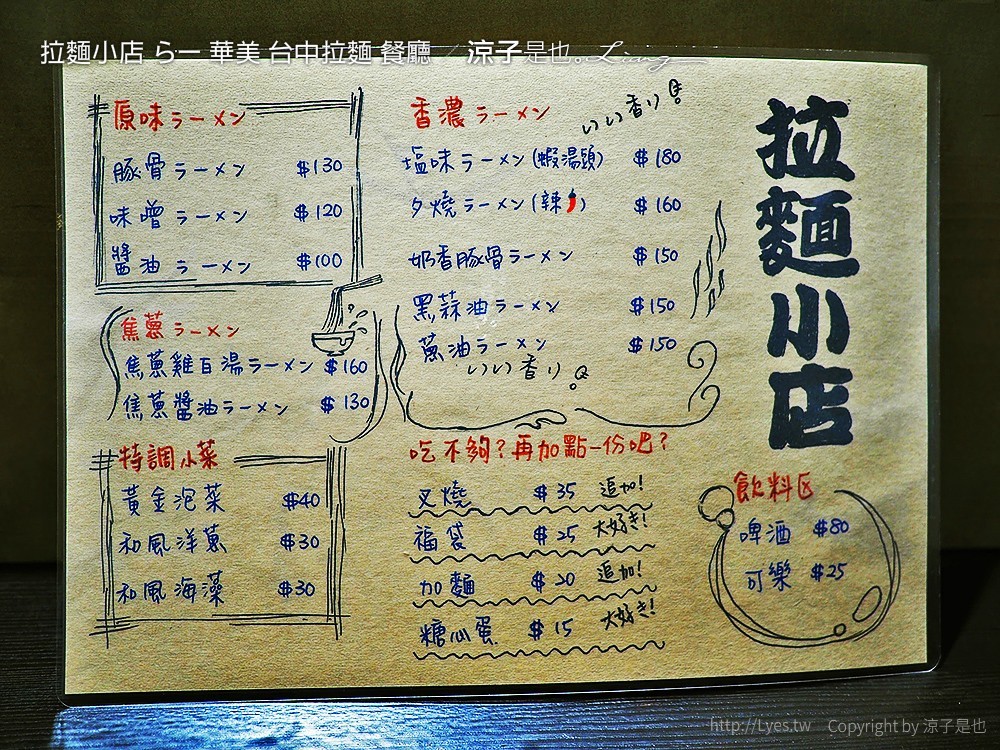 拉麵小店 らー 華美 台中拉麵 餐廳 / 涼子是也。Liang
拉麵小店
原味ラーメン
豚骨ラーメン $130
味噌ラーメン $120
醬油ラーメン $100
焦蔥ラーメン
焦蔥雞白湯ラーメン $160
焦蔥醬油ラーメン $130
特調小菜
黃金泡菜 $40
和風洋蔥 $30
和風海藻 $30
香濃ラーメン
いい香り
塩味ラーメン(蝦湯頭) $180
夕燒ラーメン(辣) $160
奶香豚骨ラーメン $150
黑蒜油ラーメン $150
蔥油ラーメン $150
いい香り
吃不夠?再加點一份吧?
叉燒 $35 追加!
福袋 $25 大好き!
加麵 $20 追加!
糖心蛋 $15 大好き!
飲料区
啤酒 $80
可樂 $25
http://Lyes.tw Copyright by 涼子是也